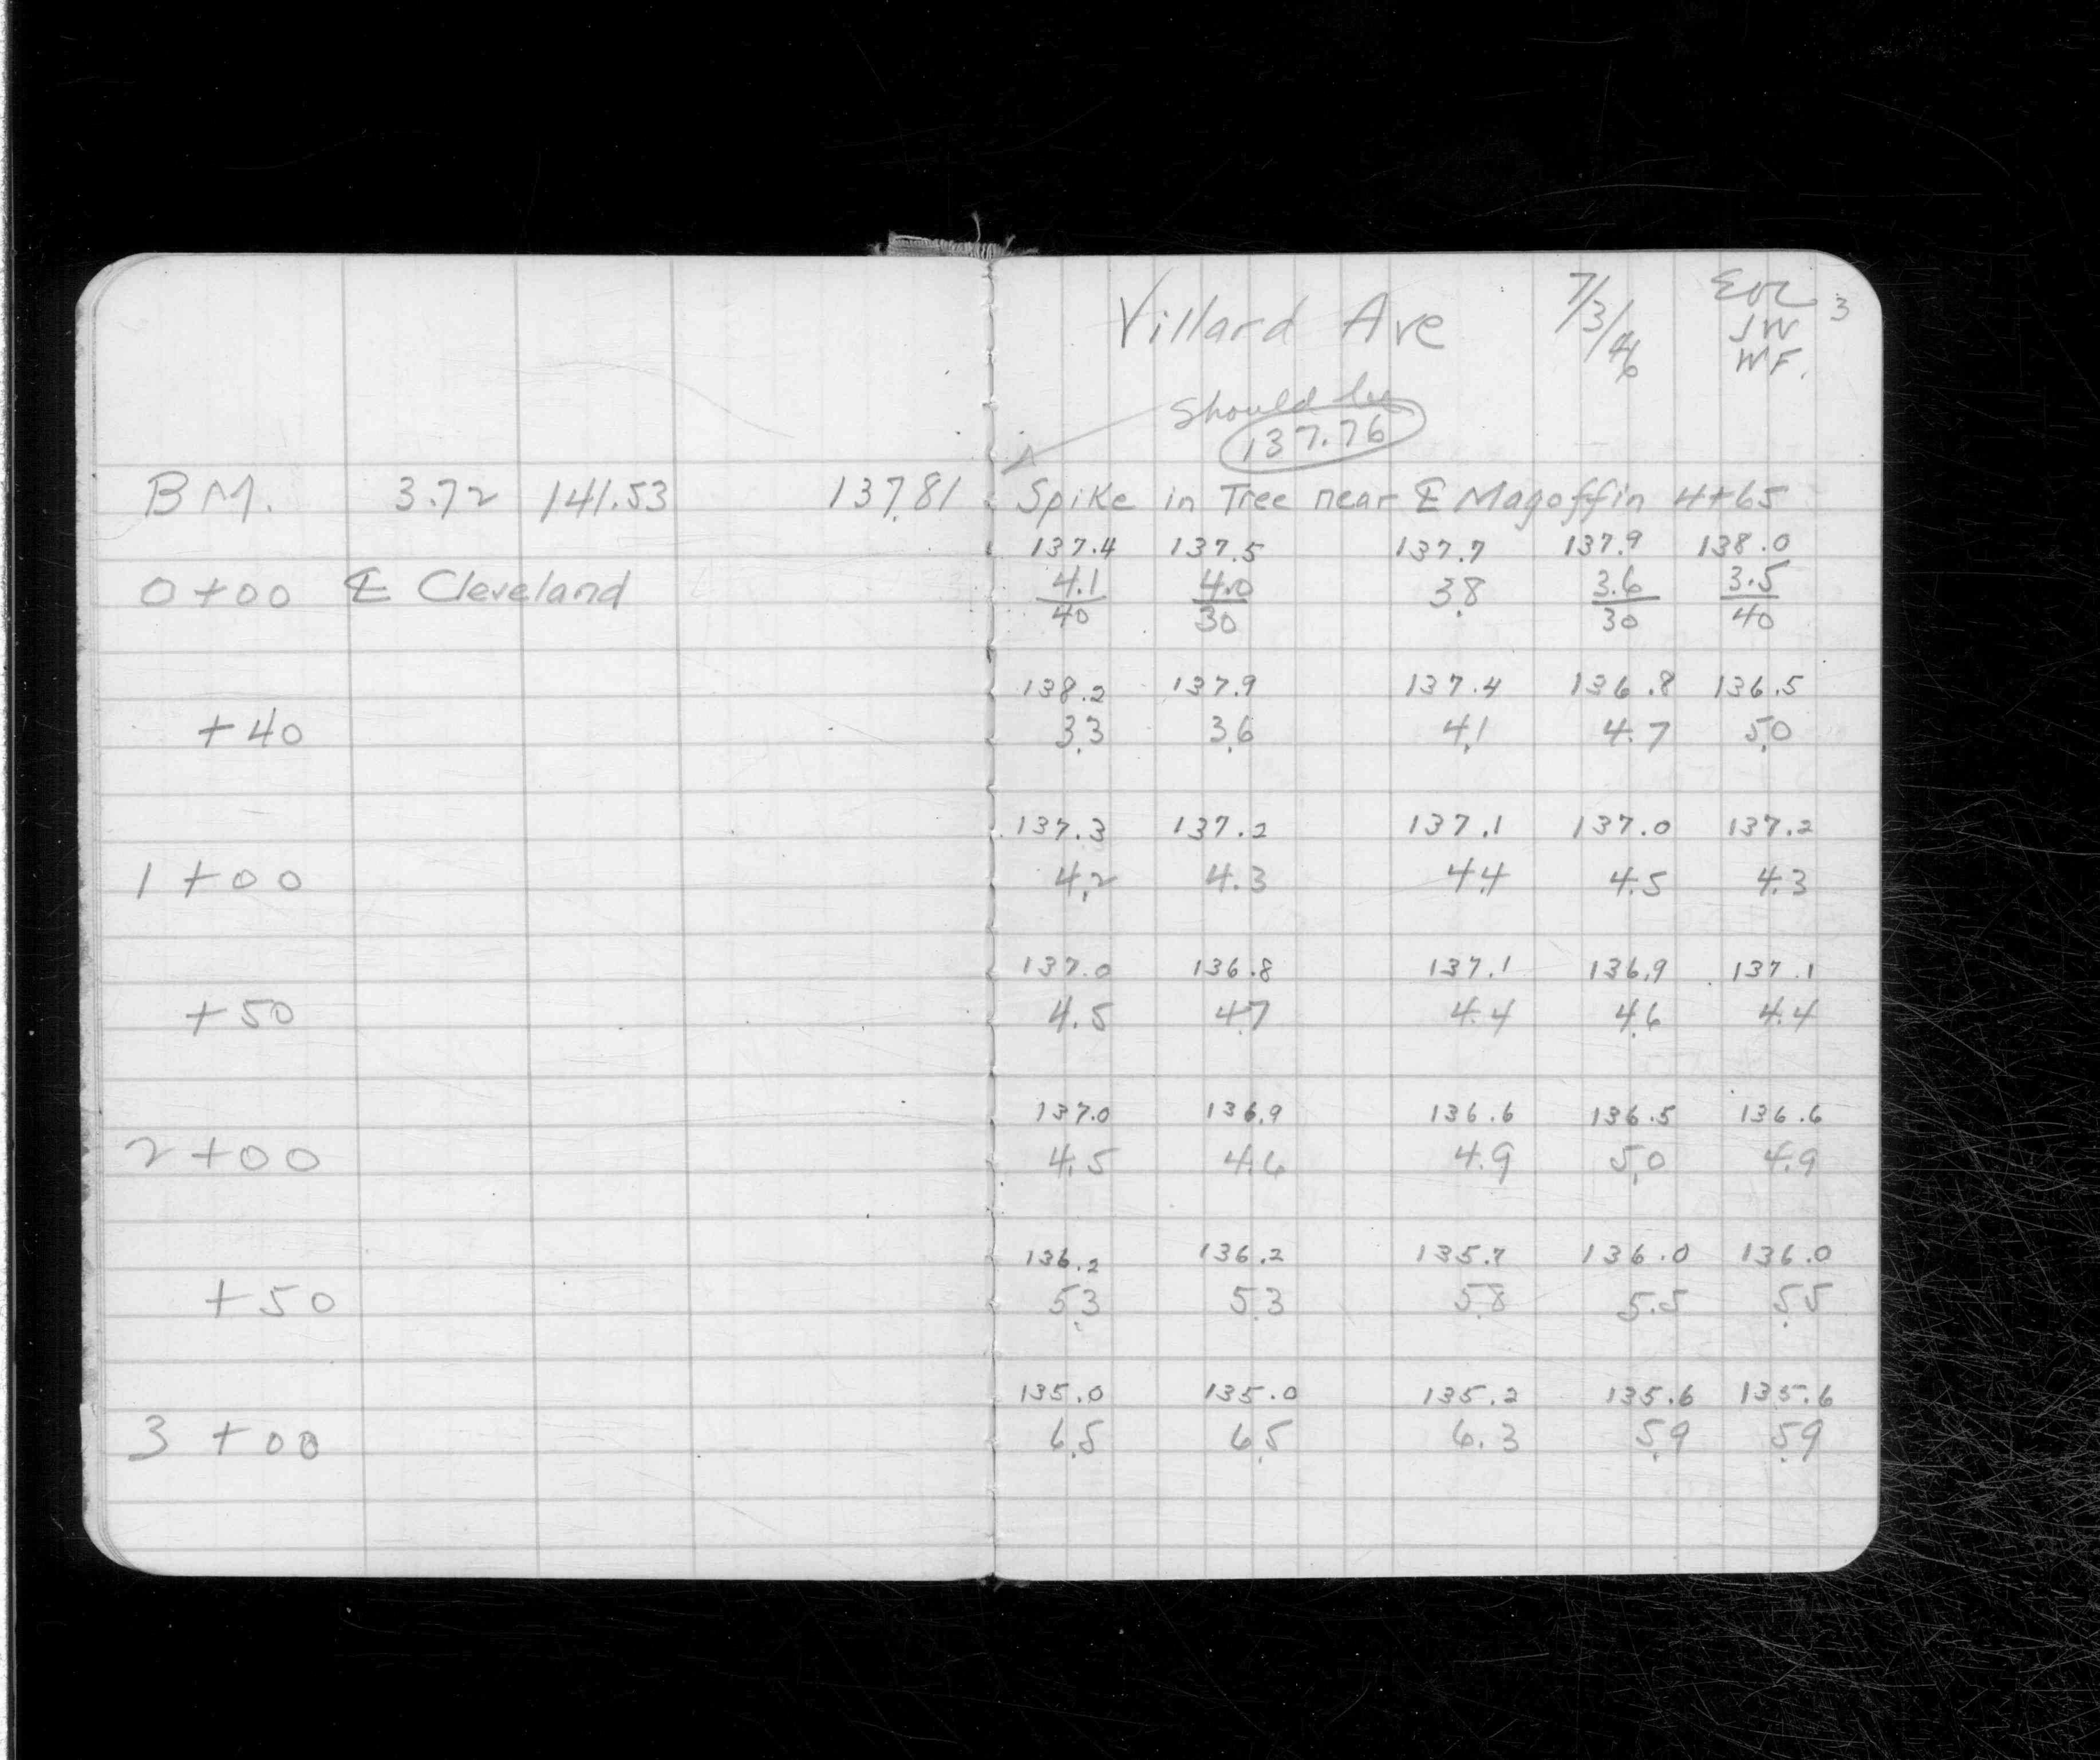 Villard Ave 7/3/46 EOL 3
JW
WF.
Should be
137.76
BM. 3.72 141.53 137.81 Spike in Tree near ℄ Magoffin 4+65
137.4 137.5 137.7 137.9 138.0
0+00 ℄ Cleveland 4.1/40 4.0/30 3.8 3.6/30 3.5/40
138.2 137.9 137.4 136.8 136.5
+40 3.3 3.6 4.1 4.7 5.0
137.3 137.2 137.1 137.0 137.2
1+00 4.2 4.3 4.4 4.5 4.3
137.0 136.8 137.1 136.9 137.1
+50 4.5 4.7 4.4 4.6 4.4
137.0 136.9 136.6 136.5 136.6
2+00 4.5 4.6 4.9 5.0 4.9
136.2 136.2 135.7 136.0 136.0
+50 5.3 5.3 5.8 5.5 5.5
135.0 135.0 135.2 135.6 135.6
3+00 6.5 6.5 6.3 5.9 5.9